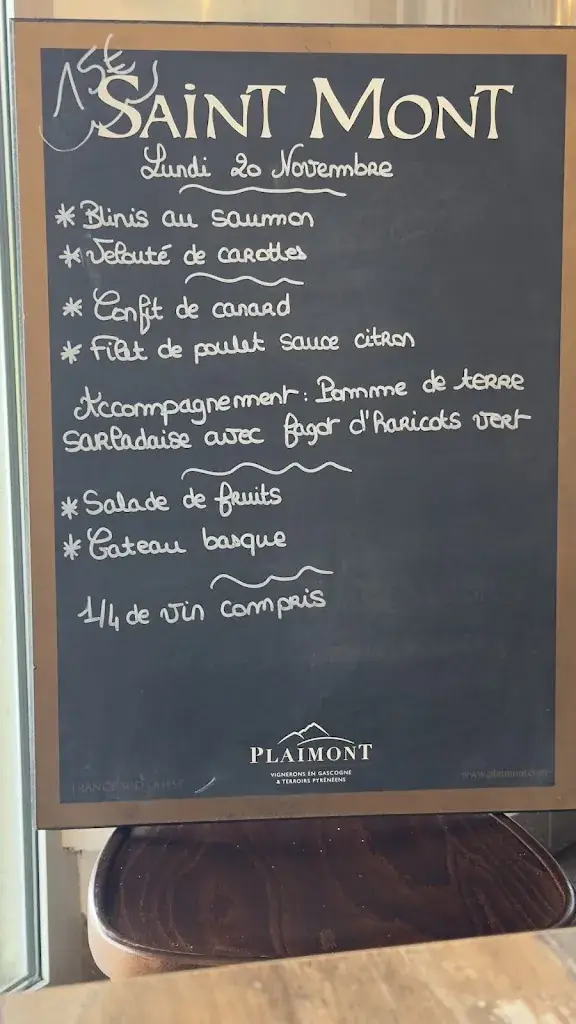 15€
SAINT MONT
Lundi 20 Novembre
* Blinis au saumon
* Velouté de carottes
* Confit de canard
* Filet de poulet sauce citron
Accompagnement : Pomme de terre
sarladaise avec fagot d'haricots vert
* Salade de fruits
* Gateau basque
1/4 de vin compris
PLAIMONT
VIGNERONS EN GASCOGNE
& TERROIRS PYRÉNÉENS
FRANCE SUD-OUEST
www.plaimont.com